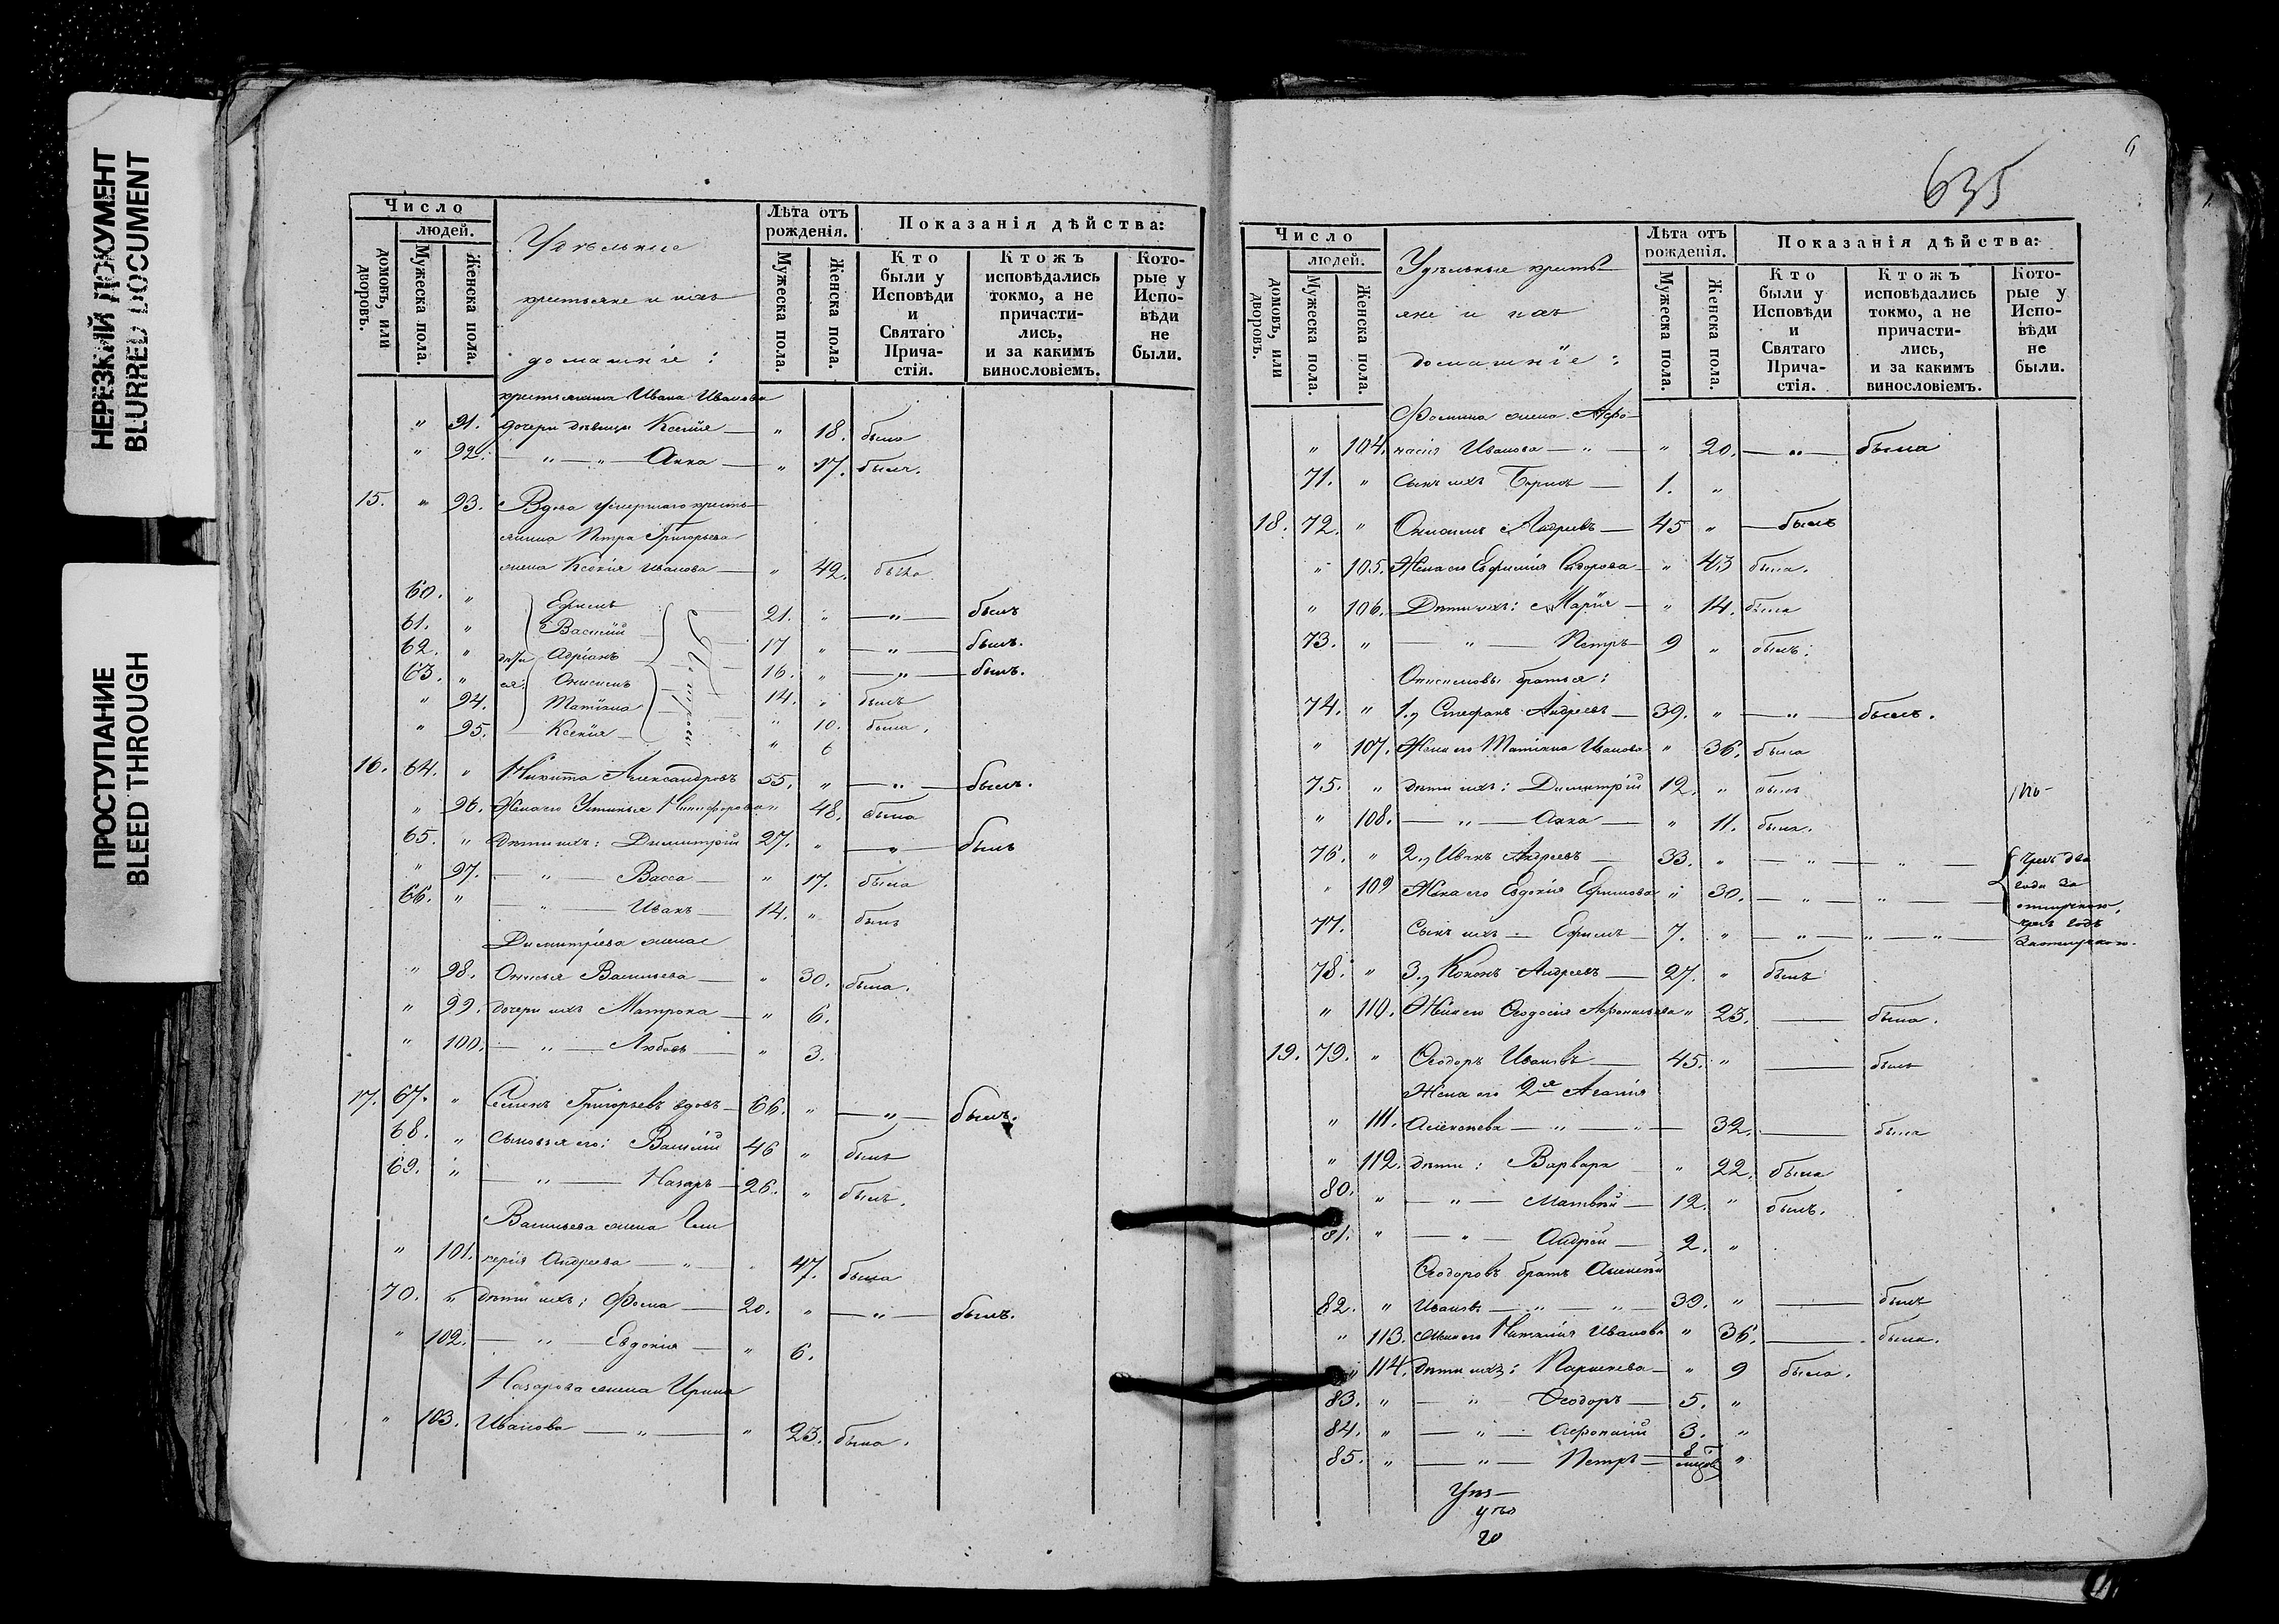 НЕРЕЗКИЙ ДОКУМЕНТ
BLURRED DOCUMENT
ПРОСТУПАНИЕ
BLEED THROUGH
Число
людей.
домовъ, или дворовъ.
Мужеска пола.
Женска пола.
Удѣльные
крестьяне и ихъ
домашніе:
Лѣта отъ рожденія.
Мужеска пола.
Женска пола.
Показанія дѣйства:
Кто были у Исповѣди и Святаго Прича-стія.
Ктожъ исповѣдались токмо, а не причасти-лись, и за какимъ винословіемъ.
Кото-рые у Испо-вѣди не были.
крестьянина Ивана Иванова
" 91. дочери дѣвицы Ксенія — " 18. была
" 92. — " — " — Анна — " 17. была.
15. " 93. Вдова умершаго кресть-
янина Петра Григорьева
жена Ксенія Иванова — " 42. была
60. " Ефимъ 21. " — " — былъ
61. " Василій 17 " — " — былъ.
62. " дѣти Адріанъ 16. " — " — былъ.
63. " ея: Онисимъ 14. " былъ
" 94. Матрона " 10. была.
" 95. Ксенія " 6
16. 64. " Никита Александровъ 55. " — " — былъ.
" 96. Жена его Устинья Никифорова " 48. была
65. " Дѣти ихъ: Димитрій 27. " — " — былъ
" 97. — " — Васса — " 17. была
66. " — " — Иванъ — 14. " былъ
Димитріева жена
" 98. Онисья Васильева — " 30. была.
" 99. дочери ихъ Матрона — " 6.
" 100. — " — Любовь — " 3.
17. 67. " Семенъ Григорьевъ вдовъ — 66. " — " — былъ.
68. " Сыновья его: Василій 46 " былъ
69. " — " — Назаръ — 26. " былъ.
Васильева жена Гли-
" 101. керія Андреева — " 47. была
70. " дѣти ихъ: Фома — 20. " — " — былъ.
" 102. — " — Евдокія — " 6.
Назарова жена Ирина
" 103. Иванова — " — " 23. была.
635
Число
людей.
домовъ, или дворовъ.
Мужеска пола.
Женска пола.
Удѣльные кресть-
яне и ихъ
домашніе:
Лѣта отъ рожденія.
Мужеска пола.
Женска пола.
Показанія дѣйства:
Кто были у Исповѣди и Святаго Прича-стія.
Ктожъ исповѣдались токмо, а не причасти-лись, и за какимъ винословіемъ.
Кото-рые у Испо-вѣди не были.
Фомина жена Афо-
" 104. насія Иванова — " — " 20. — " — была
71. " Сынъ ихъ Борисъ — 1. "
18. 72. " Онисимъ Андреевъ — 45 " — былъ
" 105. Жена его Евфимія Сидорова — " 43 была.
" 106. Дѣти ихъ: Марія — " 14. была
73. " — " — Петръ — 9 " былъ.
Онисимовы братья:
74. " 1., Стефанъ Андреевъ — 39. " — " — былъ.
" 107. Жена его Матрона Иванова " 36. была
75. " дѣти ихъ: Димитрій 12. " былъ
" 108. — " — Анна — " 11. была.
76. " 2., Иванъ Андреевъ — 33. " — " — " — чрезъ два
" 109 Жена его Евдокія Ефимова " 30. — " — " — года за отлучкою,
77. Сынъ ихъ — Ефимъ — 7. " — " — " — " — чрезъ годъ за отлучкою.
78. " 3., Кононъ Андреевъ — 27. " былъ
" 110. Жена его Ѳеодосія Афонасьева " 23. — была.
19. 79. " Ѳеодоръ Ивановъ — 45. " — былъ
Жена его 2я Агапія
" 111. Алексѣева — " — " — 32. — была
" 112. дѣти: Варвара " 22. была
80. " — " — Матвѣй — 12. " былъ.
81. " — " — Андрей — 2. "
Ѳеодоровъ братъ Алексѣй
82. " Ивановъ — " — " — 39. " — былъ
" 113. жена его Наталія Иванова " 36. — была.
" 114. дѣти ихъ: Параскева — " 9 была.
83. " — " — Ѳеодоръ — 5. "
84. " — " — Афонасій 3. "
85. " — " — Петръ — 8 мѣсяц. "